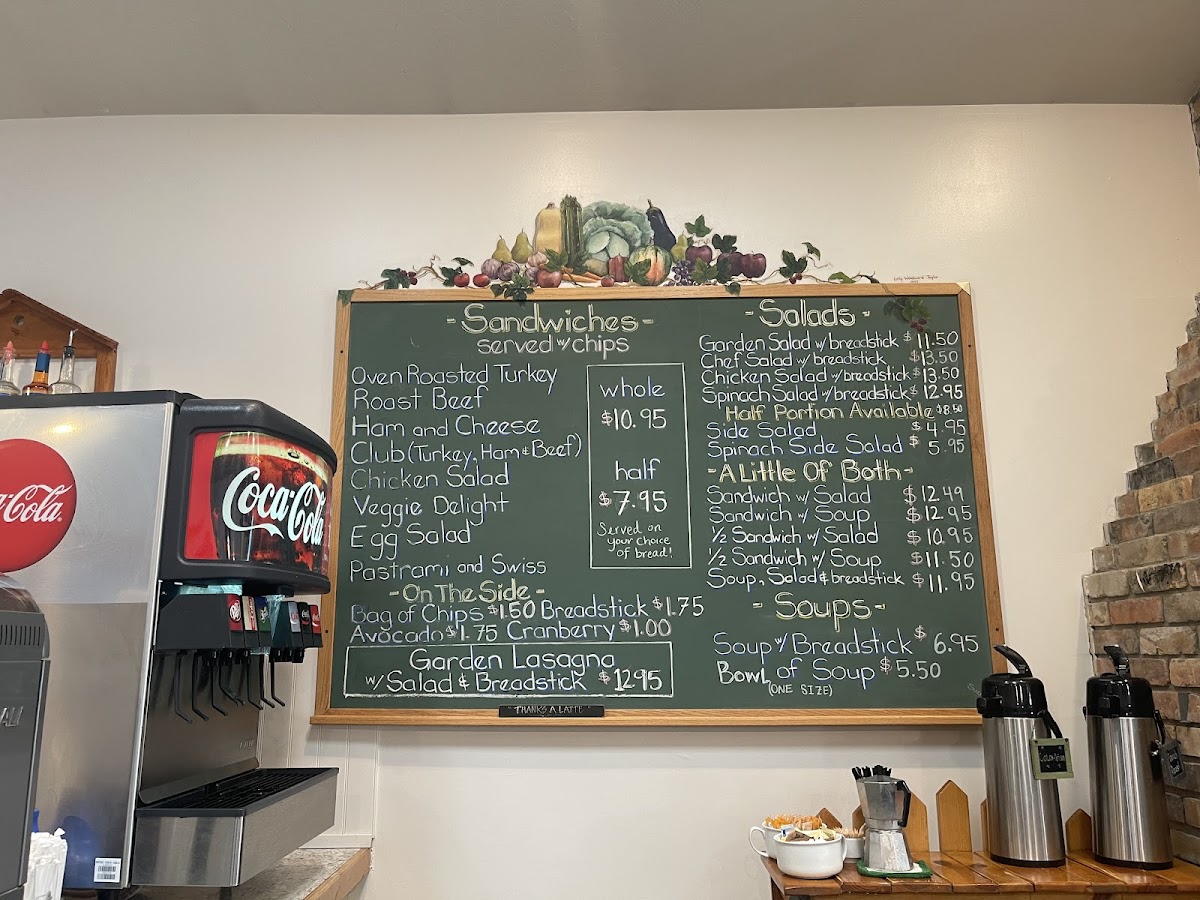 - Sandwiches -
served w/ chips
Oven Roasted Turkey
Roast Beef
Ham and Cheese
Club (Turkey, Ham & Beef)
Chicken Salad
Veggie Delight
Egg Salad
Pastrami and Swiss
whole
$10.95
half
$7.95
Served on
your choice
of bread!
- On The Side -
Bag of Chips $1.50 Breadstick $1.75
Avocado $1.75 Cranberry $1.00
Garden Lasagna
w/ Salad & Breadstick $12.95
- Salads -
Garden Salad w/ breadstick $11.50
Chef Salad w/ breadstick $13.50
Chicken Salad w/ breadstick $13.50
Spinach Salad w/ breadstick $12.95
Half Portion Available $8.50
Side Salad $4.95
Spinach Side Salad $5.95
- A Little Of Both -
Sandwich w/ Salad $12.49
Sandwich w/ Soup $12.95
1/2 Sandwich w/ Salad $10.95
1/2 Sandwich w/ Soup $11.50
Soup, Salad & breadstick $11.95
- Soups -
Soup w/ Breadstick $6.95
Bowl of Soup $5.50
(ONE SIZE)
THANKS A LATTE
Coca-Cola
Coca-Cola